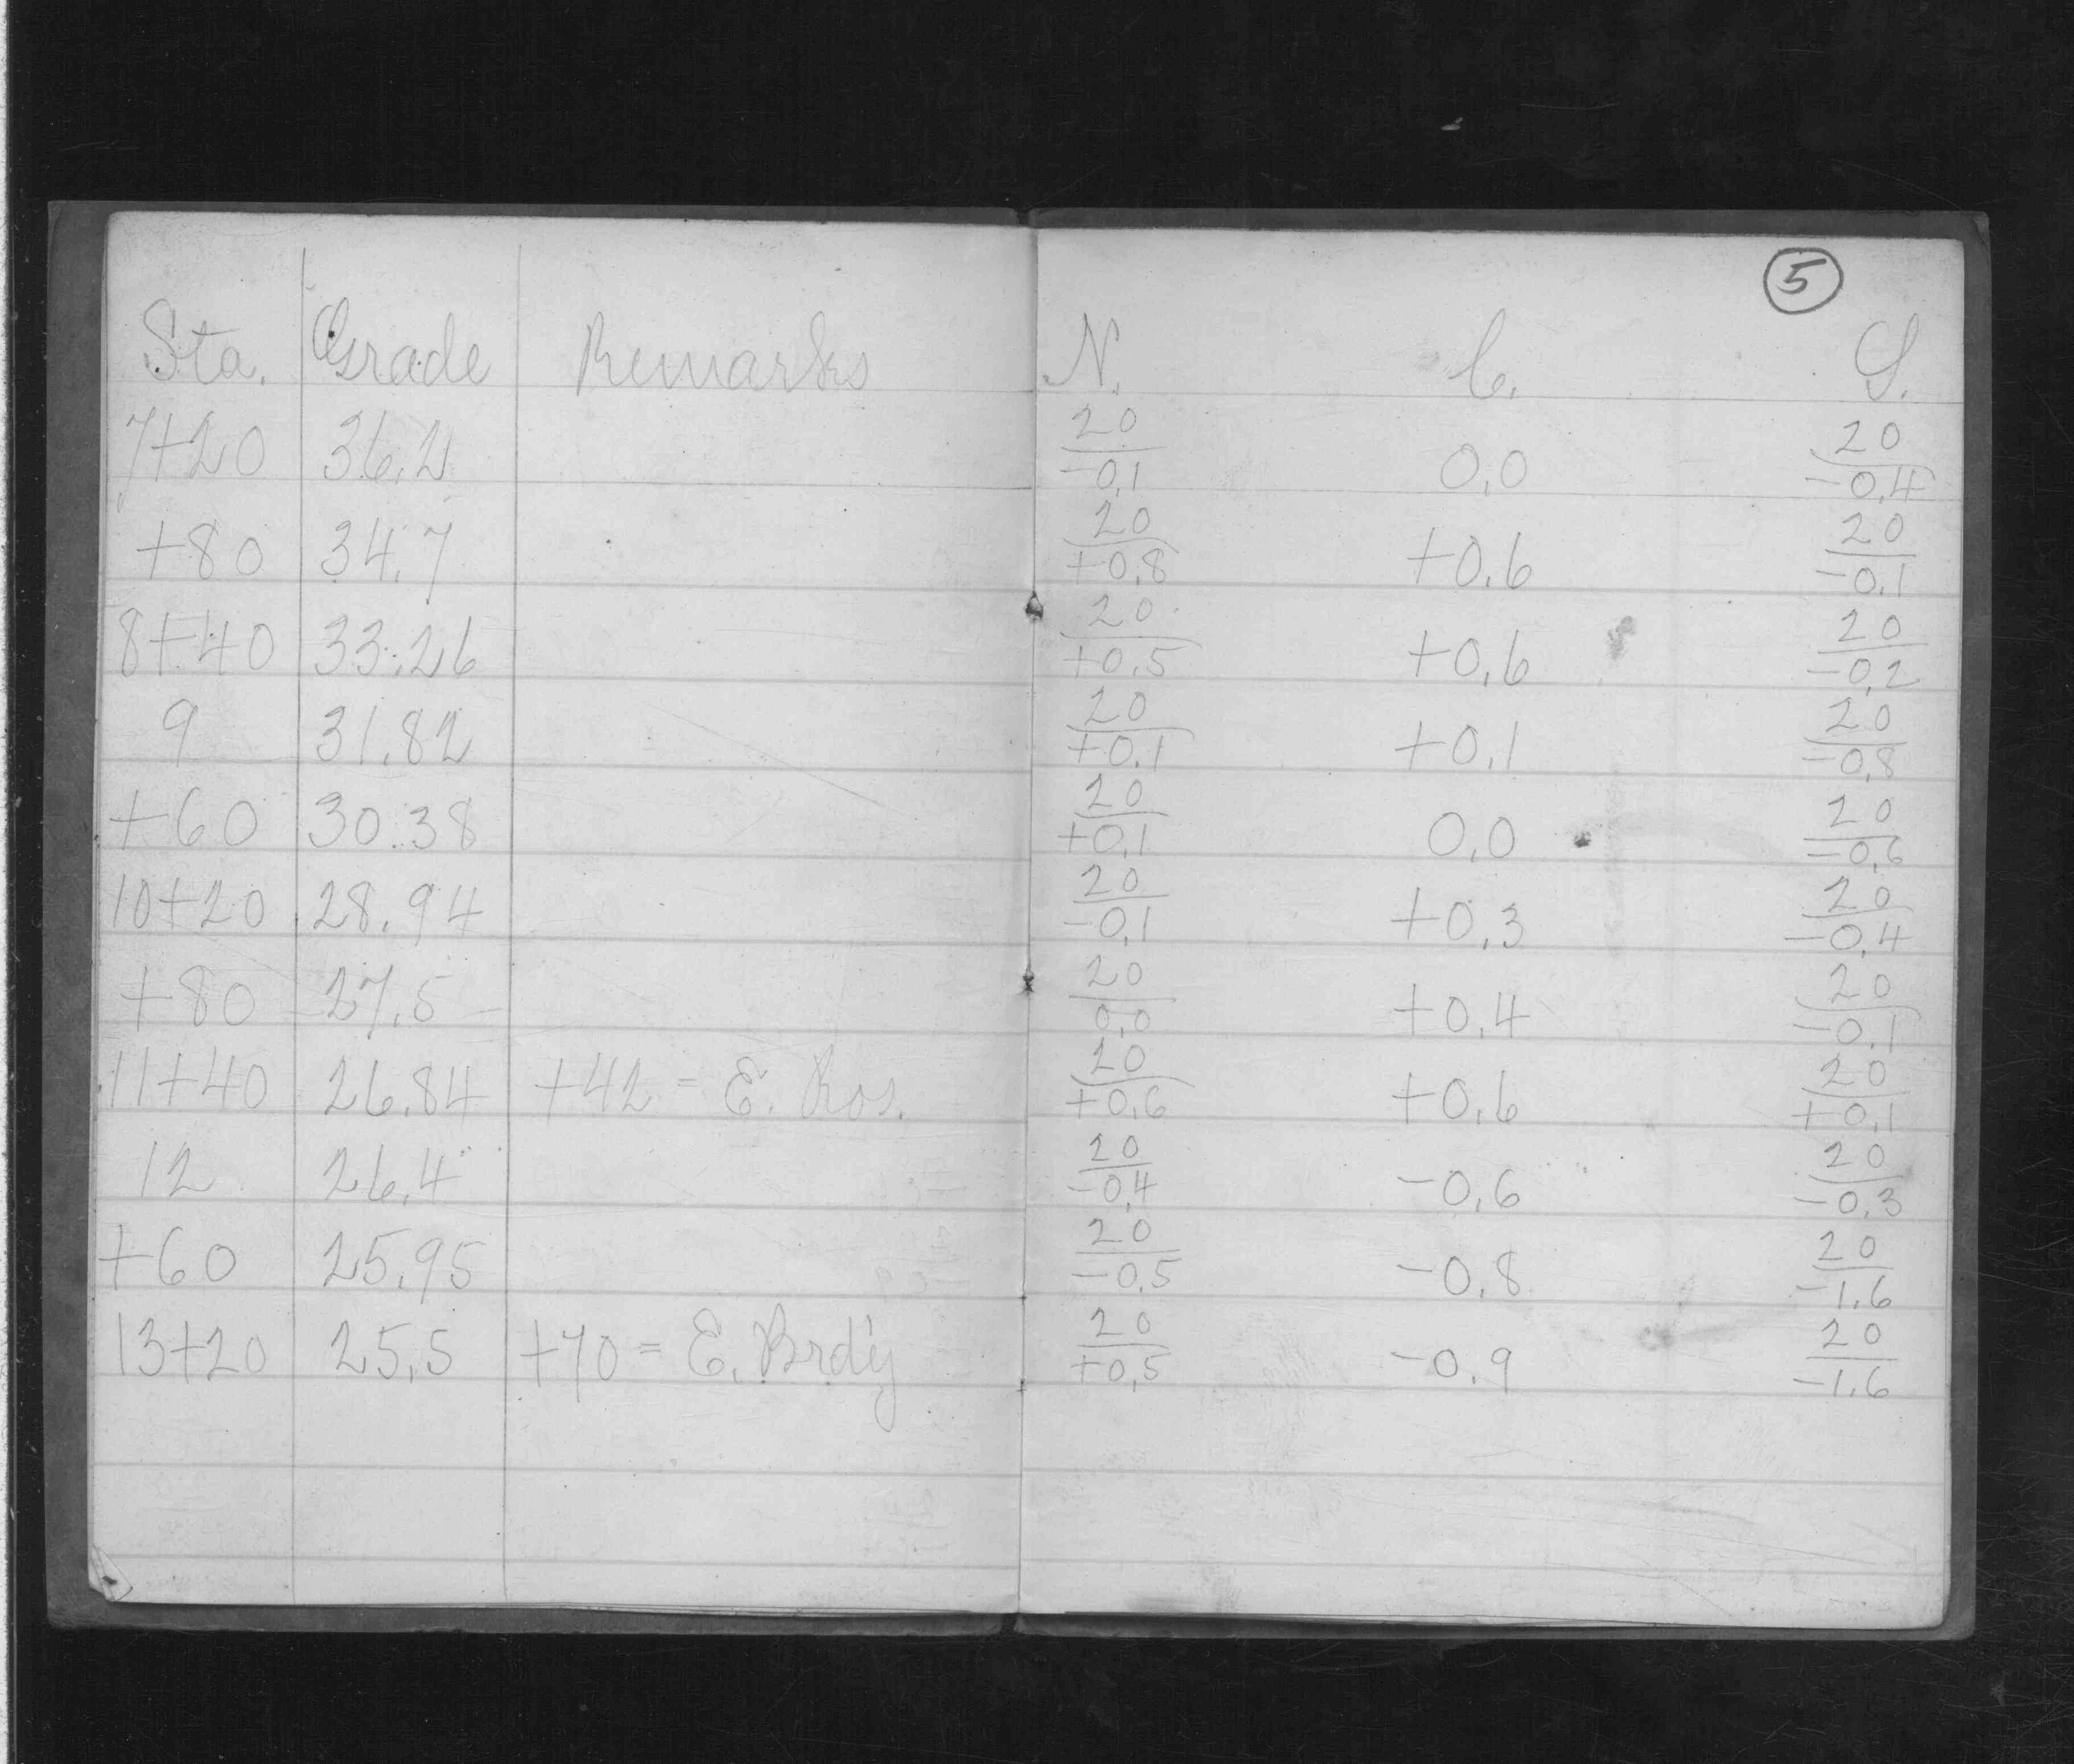 5
Sta. Grade Remarks N. C. S.
7+20 36.2 20/-0.1 0.0 20/-0.4
+80 34.7 20/+0.8 +0.6 20/-0.1
8+40 33.26 20/+0.5 +0.6 20/-0.2
9 31.82 20/+0.1 +0.1 20/-0.8
+60 30.38 20/+0.1 0.0 20/-0.6
10+20 28.94 20/-0.1 +0.3 20/-0.4
+80 27.5 20/0.0 +0.4 20/-0.1
11+40 26.84 +42 = E. Ros. 20/+0.6 +0.6 20/+0.1
12 26.4 20/-0.4 -0.6 20/-0.3
+60 25.95 20/-0.5 -0.8 20/-1.6
13+20 25.5 +70 = E. Brdy 20/+0.5 -0.9 20/-1.6